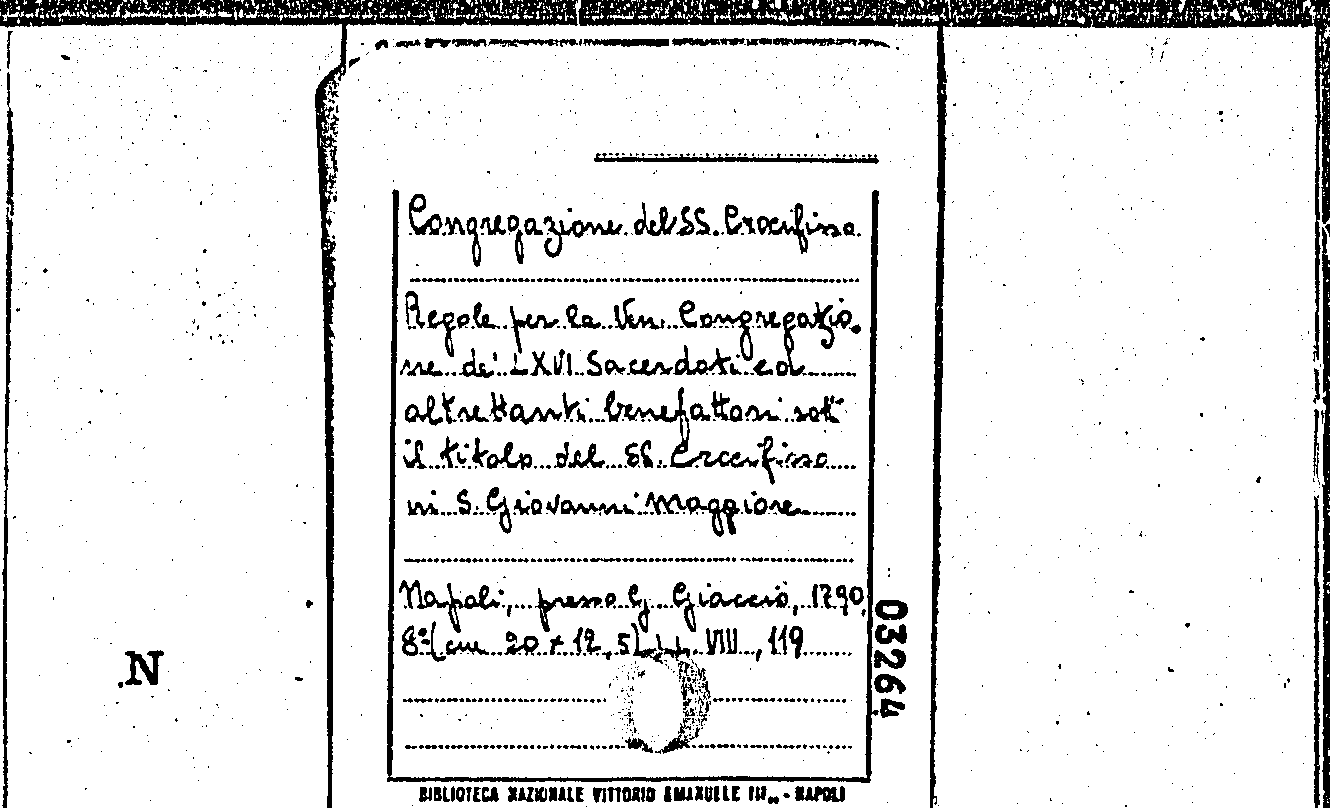 Congregazione del SS. Crocifisso
Regole per la Ven. Congregazio-
ne de' LXVI Sacerdoti ed
altrettanti benefattori sott'
il titolo del SS. Crocifisso
in S. Giovanni Maggiore
Napoli, presso G. Giaccio, 1790,
8° (cm 20 x 12,5) VIII, 119
03264
N
BIBLIOTECA NAZIONALE VITTORIO EMANUELE III - NAPOLI